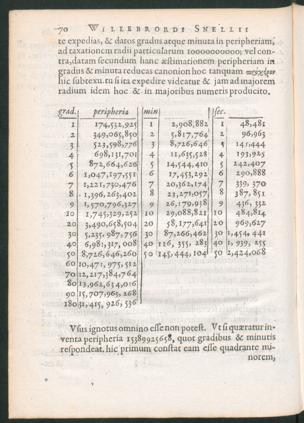 70 WILLEBRORDI SNELLII
te expedias, & datos gradus atque minuta in peripheriam,
ad taxationem radii particularum 10000000000; vel con-
tra, datam secundum hanc æstimationem peripheriam in
gradus & minuta reducas canonion hoc tanquam
hic subtexu. tu si ita expedire videatur & jam ad majorem
radium idem hoc & in majoribus numeris producito.
grad. peripheria min sec.
1 174,532,925 1 2,908,882 1 48,481
2 349,065,850 2 5,817,764 2 96,963
3 523,598,776 3 8,726,646 3 145,444
4 698,131,701 4 11,635,528 4 193,925
5 872,664,626 5 14,544,410 5 242,407
6 1,047,197,551 6 17,453,292 6 290,888
7 1,221,730,476 7 20,362,174 7 339,370
8 1,396,263,402 8 23,271,057 8 387,851
9 1,570,796,327 9 26,179,938 9 436,332
10 1,745,329,252 10 29,088,821 10 484,814
20 3,490,658,504 20 58,177,641 20 969,627
30 5,235,987,756 30 87,266,462 30 1,454,441
40 6,981,317,008 40 116,355,283 40 1,939,255
50 8,726,646,260 50 145,444,104 50 2,424,068
60 10,471,975,512
70 12,217,304,764
80 13,962,634,016
90 15,707,963,268
180 31,415,926,536
Vsus ignotus omnino esse non potest. Vt si quæratur in-
venta peripheria 15389925658, quot gradibus & minutis
respondeat. hic primum constat eam esse quadrante mi-
norem,